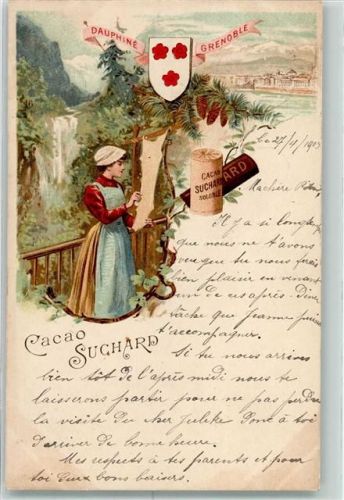 DAUPHINÉ GRENOBLE
Le 27/9/1903
CACAO
SUCHARD
SOLUBLE
SUCHARD
Ma chère
Il y a si longtemps
que nous ne t'avons
vue que tu nous ferais
bien plaisir en venant
un de ces après-dîners
tâche que Jeanne puisse
t'accompagner.
Cacao
SUCHARD
Si tu nous arrives
bien tôt de l'après midi nous te
laisserons partir pour ne pas perdre
la visite du cher Donc à toi
d'arriver de bonne heure.
Mes respects à tes parents et pour
toi deux bons baisers.